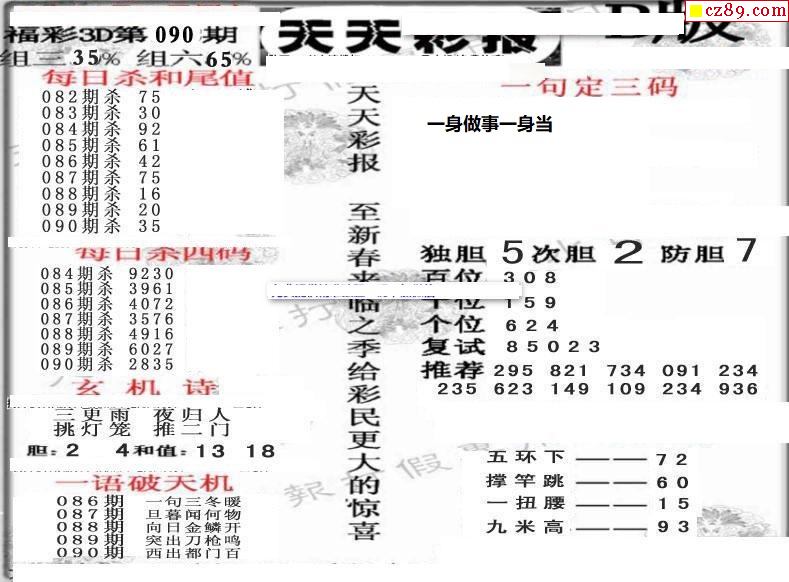 cz89.com
福彩3D第090期
天天彩报
B版
组三35% 组六65%
每日杀和尾值
082期杀 75
083期杀 30
084期杀 92
085期杀 61
086期杀 42
087期杀 75
088期杀 16
089期杀 20
090期杀 35
每日杀四码
084期杀 9230
085期杀 3961
086期杀 4072
087期杀 3576
088期杀 4916
089期杀 6027
090期杀 2835
玄机诗
三更雨 夜归人
挑灯笼 推二门
胆:2 4和值:13 18
一语破天机
086期 一句三冬暖
087期 旦暮闻何物
088期 向日金鳞开
089期 突出刀枪鸣
090期 西出都门百
天天彩报 至新春来临之季给彩民更大的惊喜
一句定三码
一身做事一身当
独胆5次胆2防胆7
百位 308
十位 159
个位 624
复试 85023
推荐 295 821 734 091 234
235 623 149 109 234 936
五环下——72
撑竿跳——60
一扭腰——15
九米高——93